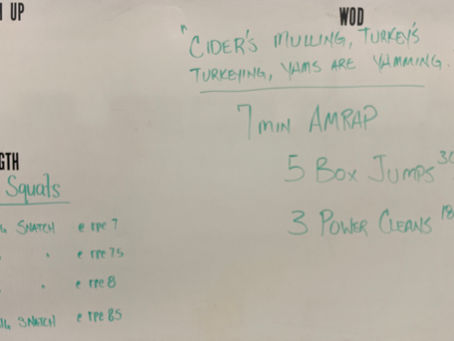 UP
WOD
"CIDER'S MULLING, TURKEY'S
TURKEYING, YAMS ARE YAMMING.
7 MIN AMRAP
5 BOX JUMPS 30
3 POWER CLEANS 18
GTH
Squats
SNATCH @ rpe 7
" @ rpe 7.5
" @ rpe 8
SNATCH @ rpe 8.5